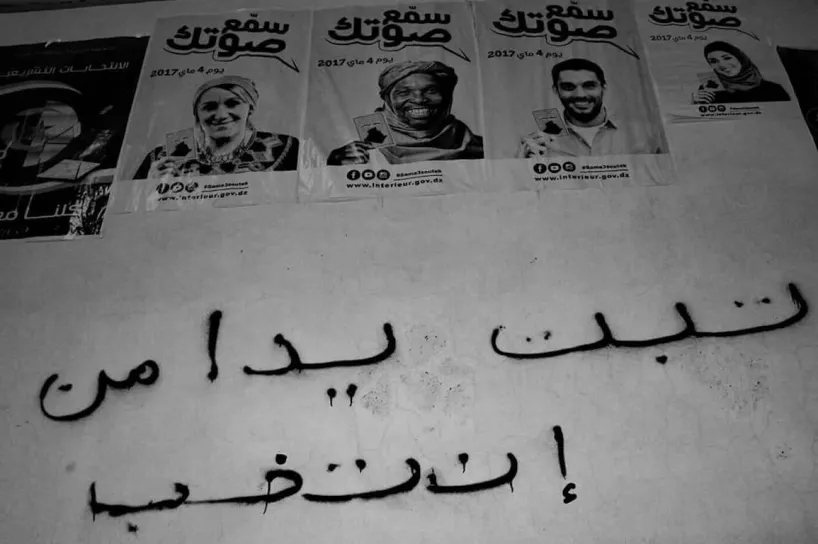 الانتخابات التشريعية
سمّع
صوتك
يوم 4 ماي 2017
#Sama3soutek
www.interieur.gov.dz
سمّع
صوتك
يوم 4 ماي 2017
#Sama3soutek
www.interieur.gov.dz
سمّع
صوتك
يوم 4 ماي 2017
#Sama3soutek
www.interieur.gov.dz
سمّع
صوتك
يوم 4 ماي 2017
تبت يدا من
إنتخب